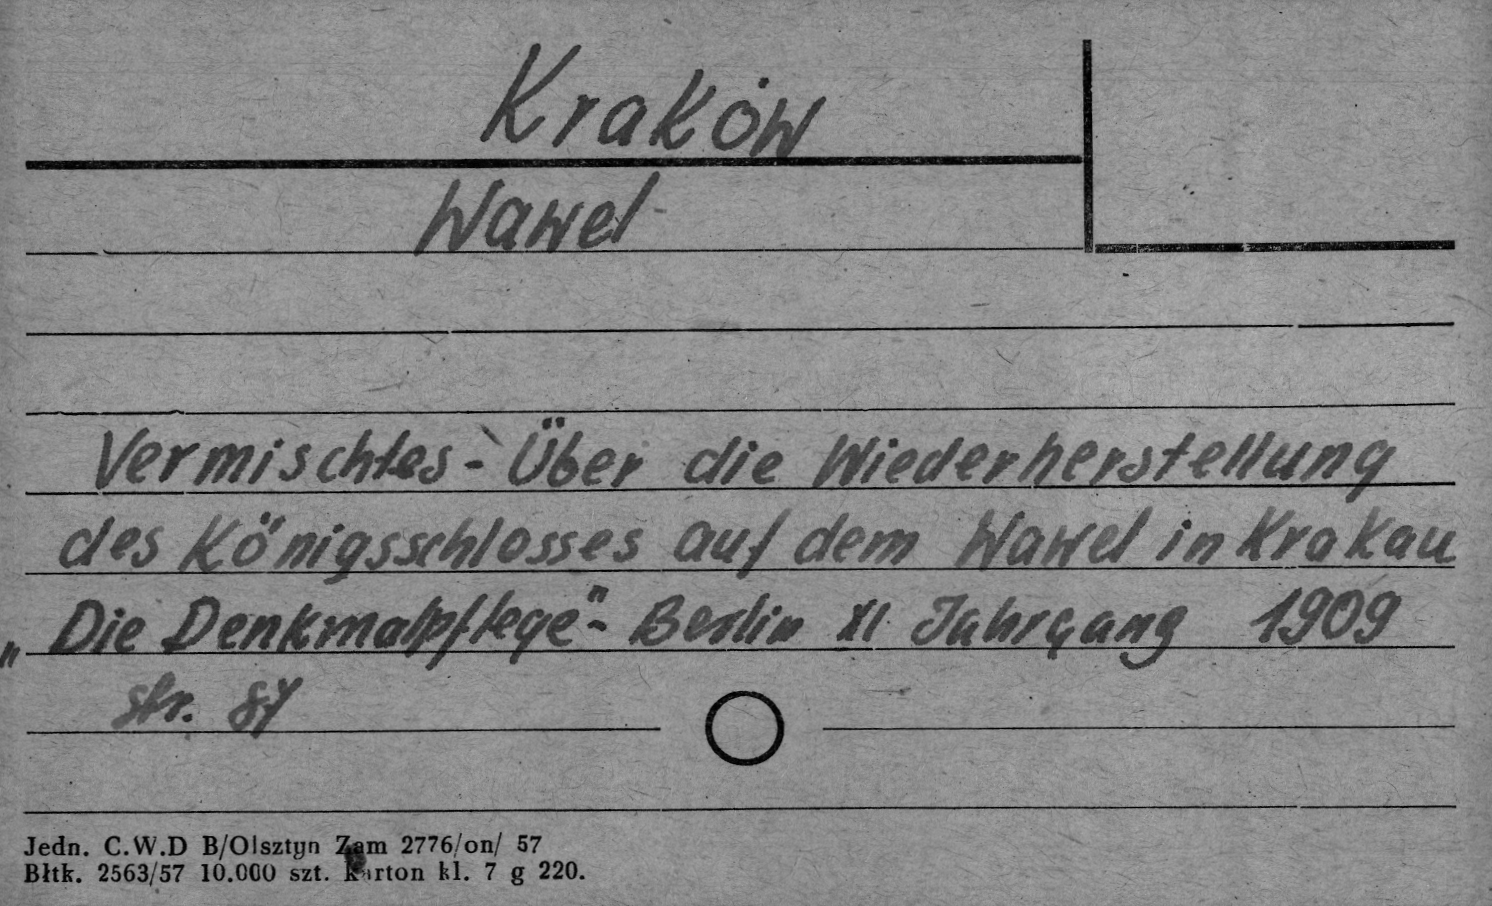 Kraków
Wawel
Vermischtes - Über die Wiederherstellung
des Königsschlosses auf dem Wawel in Krakau
„Die Denkmalpflege" - Berlin XI Jahrgang 1909
str. 87
Jedn. C.W.D B/Olsztyn Zam 2776/on/ 57
Błtk. 2563/57 10.000 szt. Karton kl. 7 g 220.